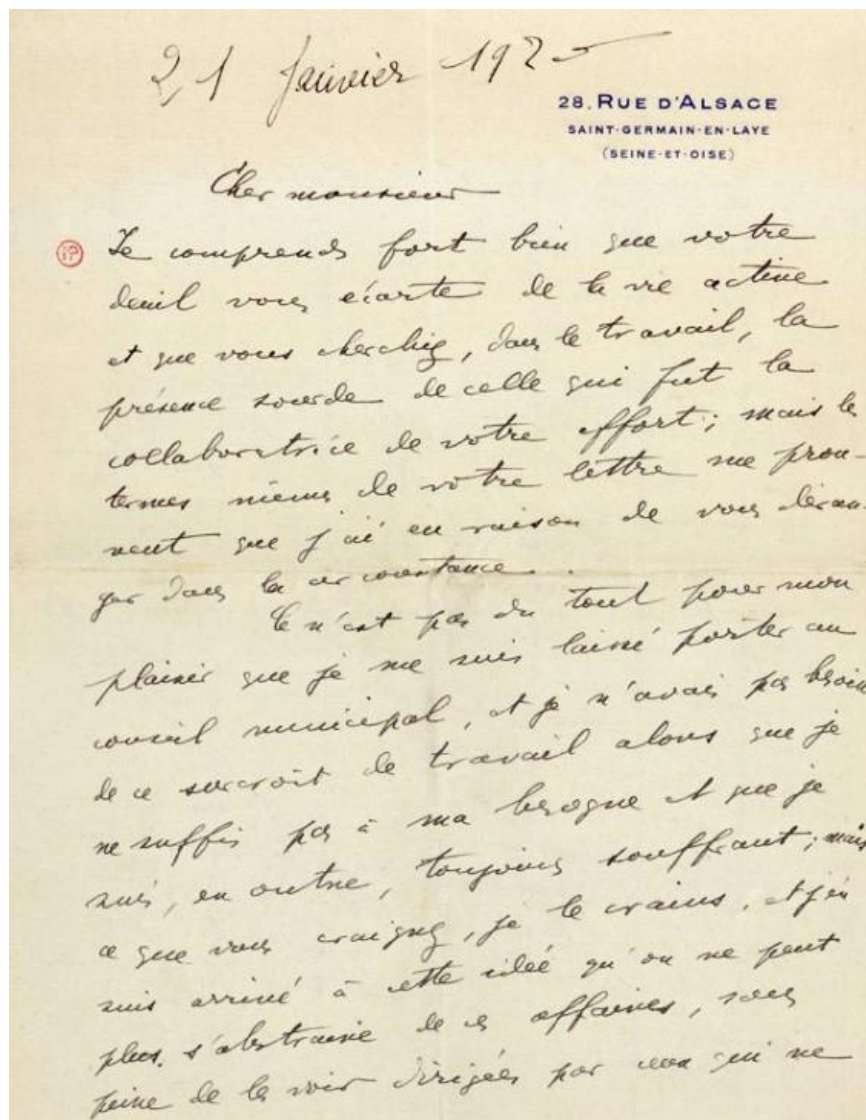 21 Janvier 1925
28, RUE D'ALSACE
SAINT-GERMAIN-EN-LAYE
(SEINE-ET-OISE)
Cher monsieur
Je comprends fort bien que votre
deuil vous écarte de la vie active
et que vous cherchiez, dans le travail, la
présence sourde de celle qui fut la
collaboratrice de votre effort; mais les
termes mêmes de votre lettre me prou-
vent que j'ai eu raison de vous déran-
ger dans la circonstance.
Ce n'est pas du tout pour mon
plaisir que je me suis laissé porter au
conseil municipal, et je n'avais pas besoin
de ce surcroit de travail alors que je
ne suffis pas à ma besogne et que je
suis, en outre, toujours souffrant; mais
ce que vous craignez, je le crains, et j'en
suis arrivé à cette idée qu'on ne peut
plus s'abstraire de ces affaires, sous
peine de les voir dirigées par ceux qui ne